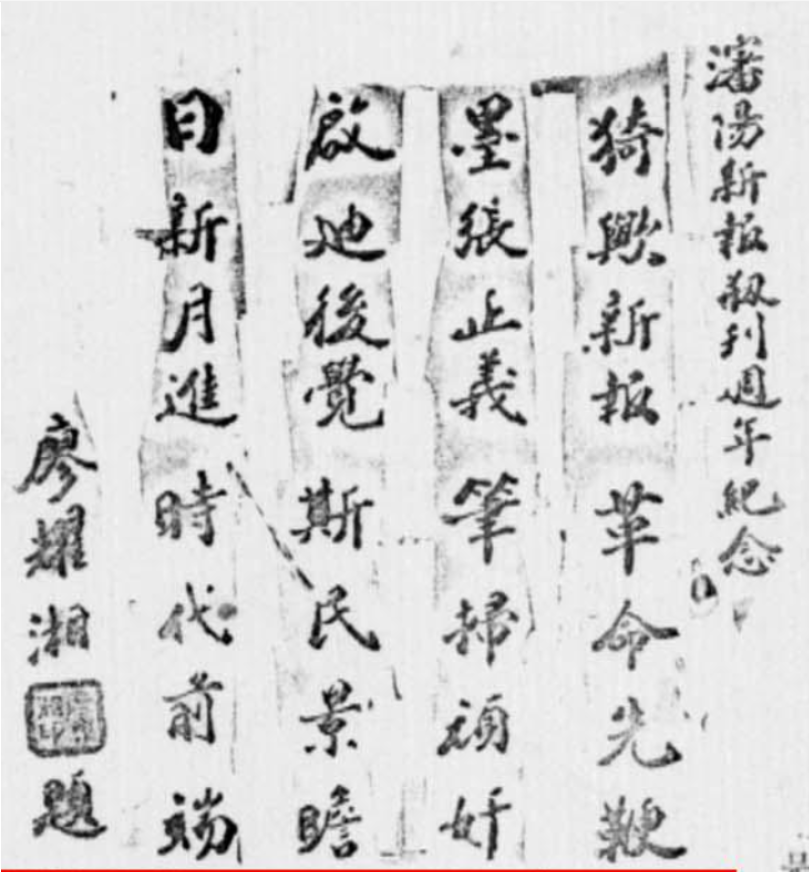 瀋陽新報刱刊週年紀念
猗歟新報 革命先鞭
墨張正義 筆掃頑奸
啟迪後覺 斯民景瞻
日新月進 時代前端
廖耀湘 題